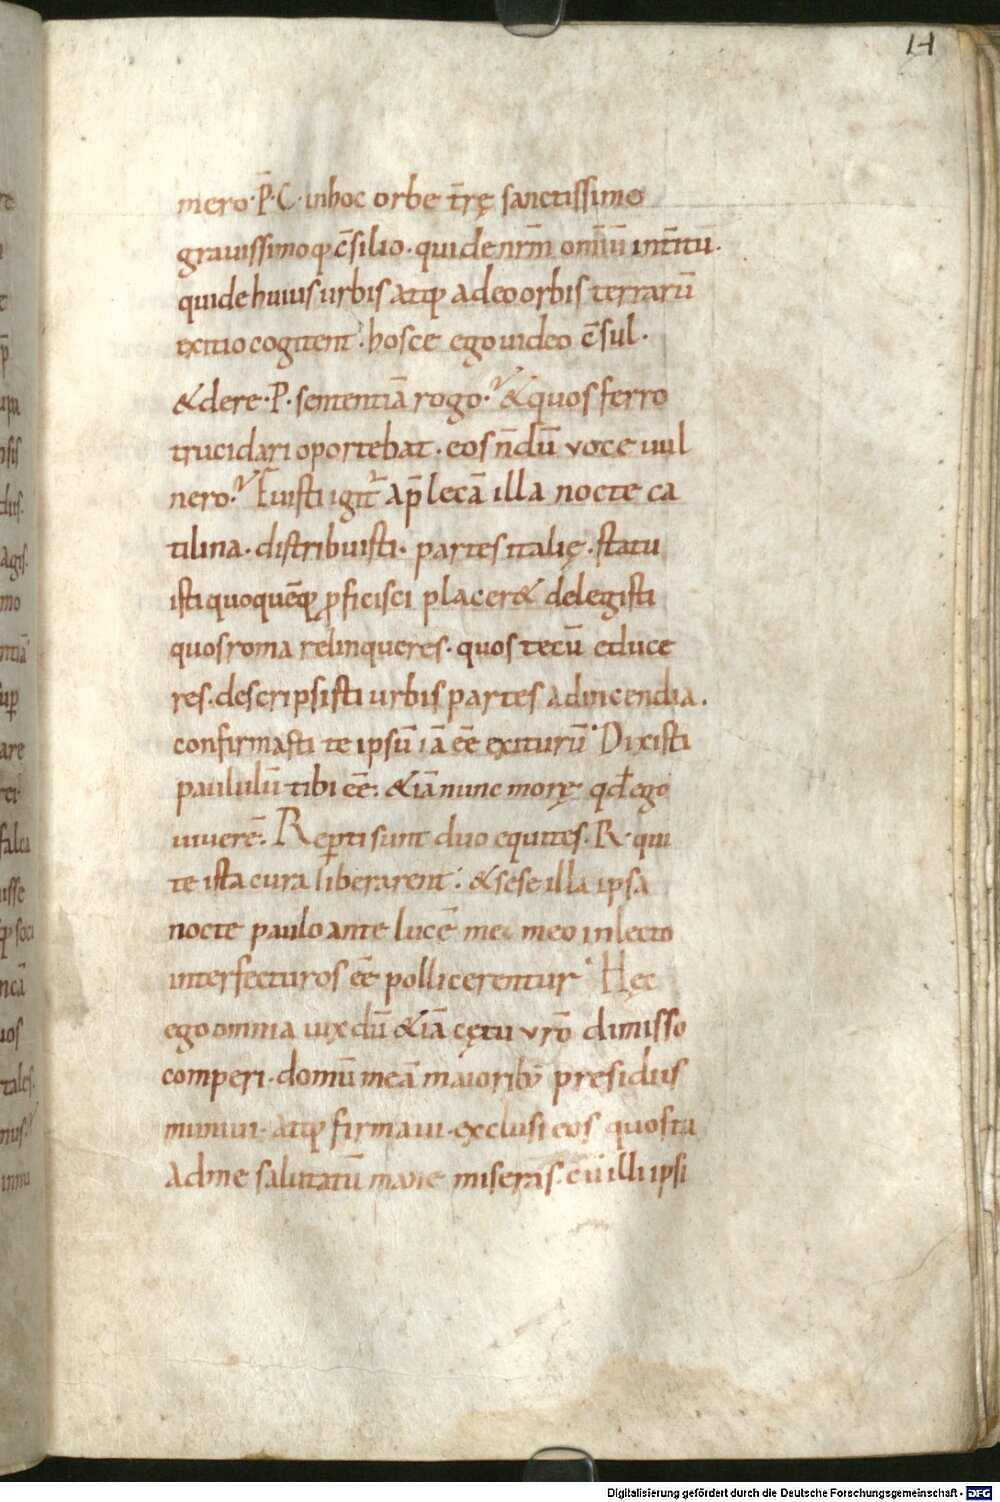 14
mero·P̄·C· inhoc orbe t̄rę sanctissimo
grauissimoq; c̄silio· quidenr̄m omīū int̄itū·
quidehuius urbis atq; adeo orbis terrarū
exitio cogitent· hosce ego uideo c̄sul·
& dere·P· sententiā rogo· & quos ferro
trucidari oportebat· eos n̄dū voce uul
nero· Fuisti igit̄ ap̄ lecā illa nocte ca
tilina· distribuisti· partes italię· statu
isti quoquēq; ꝓficisci placer& delegisti
quos roma relinqueres· quos tecū educe
res· descripsisti urbis partes ad incendia·
confirmasti te ipsū iā eē exiturū· Dixisti
paululū tibi eē· & iā nunc morę qđ ego
uiuerē· Reꝑti sunt duo equites·R· qui
te ista cura liberarent· & sese illa ipsa
nocte paulo ante lucē me meo inlecto
interfecturos eē pollicerentur· Hęc
ego omnia uixdū & iā cętu vr̄o dimisso
comperi· domū meā maiorib; presidiis
muniui· atq; firmaui· exclusi eos quostu
Adme salutatū mane miserās· cū illi ipsi
Digitalisierung gefördert durch die Deutsche Forschungsgemeinschaft - DFG